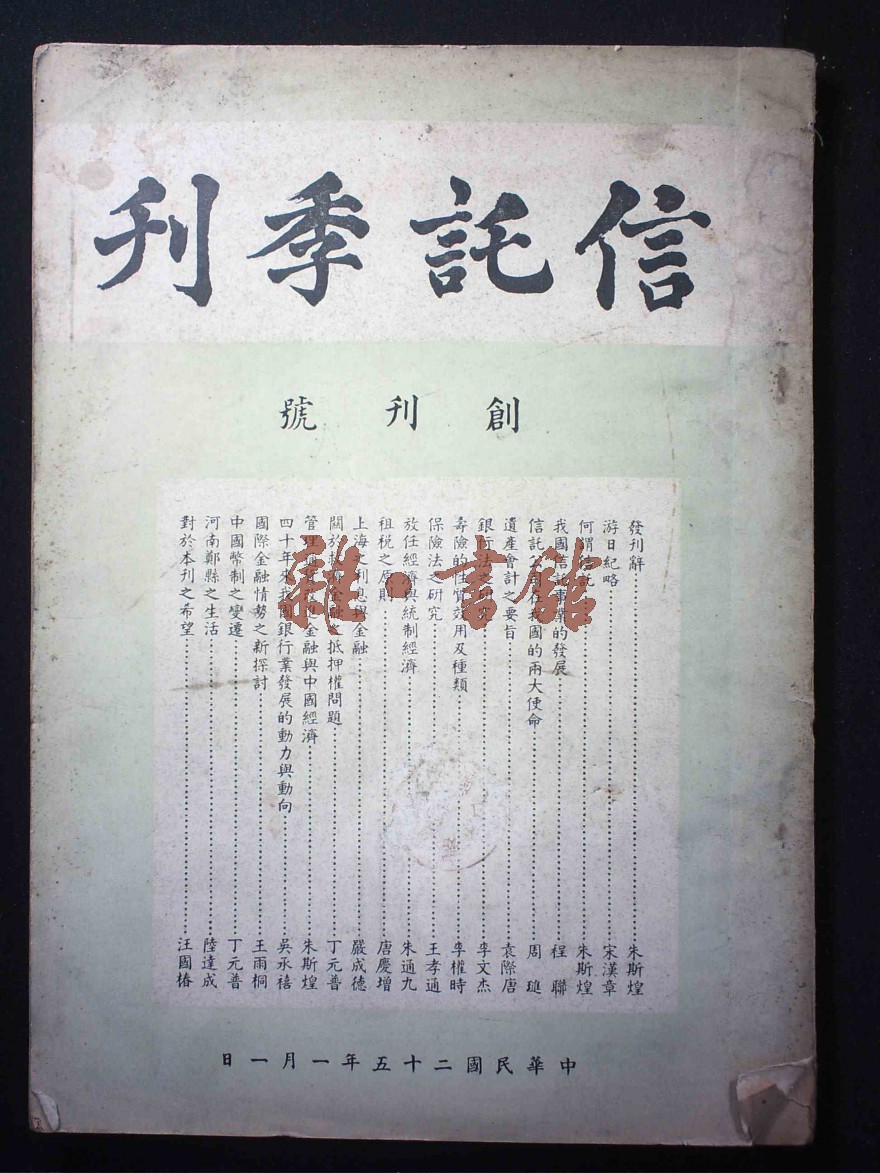 信託季刊
創刊號
發刊辭 朱斯煌
游日紀略 宋漢章
何謂信託 朱斯煌
我國信託事業的發展 程聯
信託公司在我國的兩大使命 周璉
遺產會計之要旨 袁際唐
銀行法之研究 李文杰
壽險的性質效用及種類 李權時
保險法之研究 王孝通
放任經濟與統制經濟 朱通九
租稅之原則 唐慶增
上海之利息與金融 嚴成德
關於 金融之抵押權問題 丁元普
管理 金融與中國經濟 朱斯煌
四十年來我國銀行業發展的動力與動向 吳永禧
國際金融情勢之新探討 王雨桐
中國幣制之變遷 丁元普
河南鄭縣之生活 陸達成
對於本刊之希望 汪國椿
中華民國二十五年一月一日
雜·書館